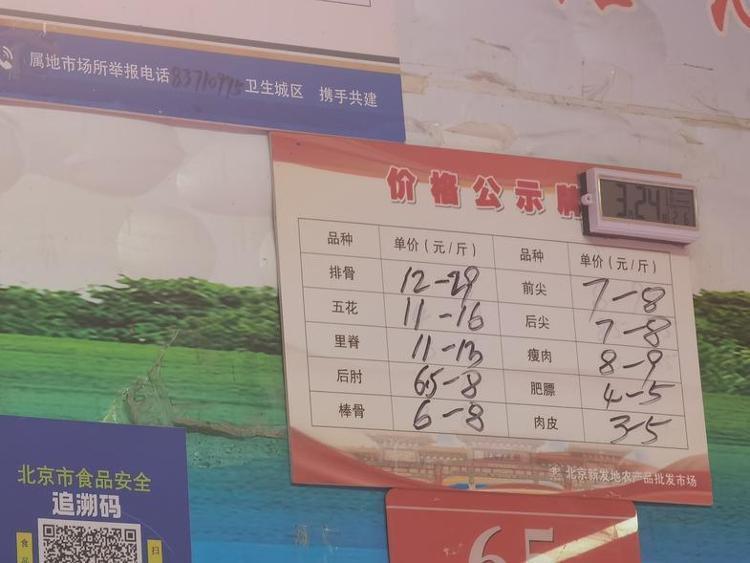 属地市场所举报电话83710995卫生城区 携手共建
价格公示牌
3.24
品种 单价（元/斤） 品种 单价（元/斤）
排骨 12-29 前尖 7-8
五花 11-16 后尖 7-8
里脊 11-13 瘦肉 8-9
后肘 6.5-8 肥膘 4-5
棒骨 6-8 肉皮 3-5
北京新发地农产品批发市场
北京市食品安全
追溯码
食
扫
65